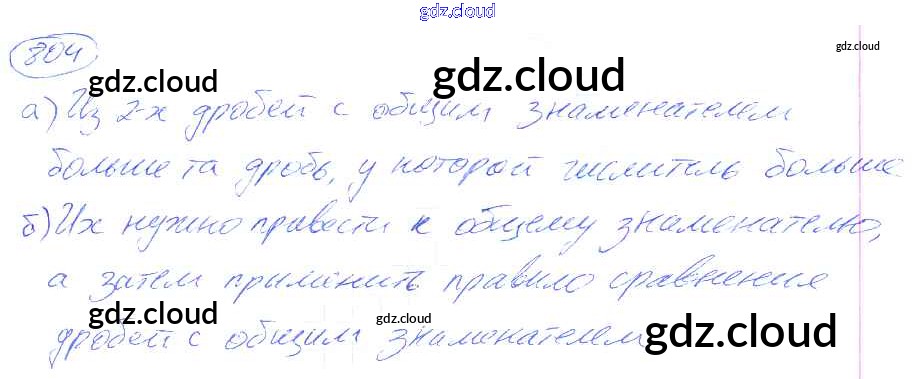 gdz.cloud
804
gdz.cloud
gdz.cloud
gdz.cloud
а) Из 2-х дробей с общим знаменателем
больше та дробь, у которой числитель больше.
б) Их нужно привести к общему знаменателю,
а затем применить правило сравнения
gdz.cloud
gdz.cloud
gdz.cloud
дробей с общим знаменателем